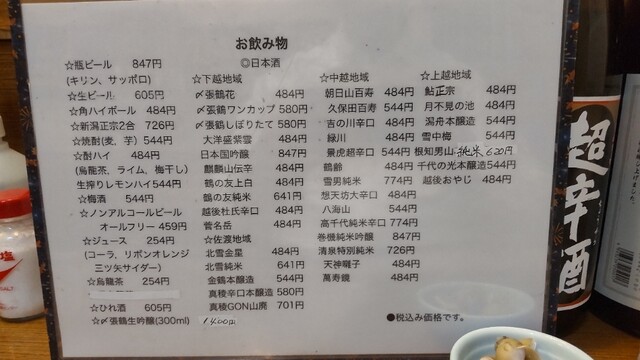 お飲み物
☆瓶ビール 847円
(キリン、サッポロ)
☆生ビール 605円
☆角ハイボール 484円
☆新潟正宗2合 726円
☆焼酎(麦、芋) 544円
☆酎ハイ 484円
(烏龍茶、ライム、梅干し)
生搾りレモンハイ544円
☆梅酒 544円
☆ノンアルコールビール
オールフリー 459円
☆ジュース 254円
(コーラ、リボンオレンジ
三ツ矢サイダー)
☆烏龍茶 254円
☆ひれ酒 605円
☆〆張鶴生吟醸(300ml) 1400円
◎日本酒
☆下越地域
〆張鶴花 484円
〆張鶴ワンカップ 580円
〆張鶴しぼりたて 580円
大洋盛紫雲 484円
日本国吟醸 847円
麒麟山伝辛 484円
鶴の友上白 484円
鶴の友純米 641円
越後杜氏辛口 484円
菅名岳 484円
☆佐渡地域
北雪金星 484円
北雪純米 641円
金鶴本醸造 544円
真稜辛口本醸造 580円
真稜GON山廃 701円
☆中越地域
朝日山百寿 484円
久保田百寿 544円
吉の川辛口 484円
緑川 484円
景虎超辛口 544円
鶴齢 484円
雪男純米 774円
想天坊大辛口 484円
八海山 544円
高千代純米辛口 774円
巻機純米吟醸 847円
清泉特別純米 726円
天神囃子 484円
萬寿鏡 484円
☆上越地域
鮎正宗 484円
月不見の池 484円
潟舟本醸造 544円
雪中梅 544円
根知男山 純米 620円
千代の光本醸造 544円
越後おやじ 484円
●税込み価格です。
超辛酒
塩